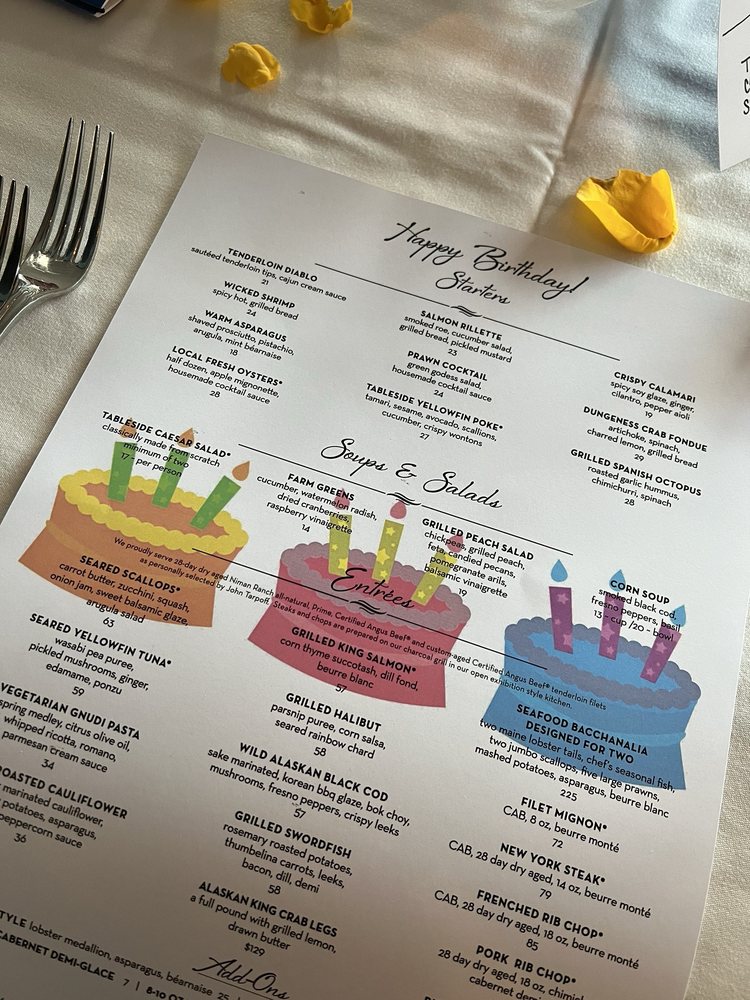 Happy Birthday!
Starters
TENDERLOIN DIABLO
sautéed tenderloin tips, cajun cream sauce
21
WICKED SHRIMP
spicy hot, grilled bread
24
WARM ASPARAGUS
shaved prosciutto, pistachio,
arugula, mint béarnaise
18
LOCAL FRESH OYSTERS*
half dozen, apple mignonette,
housemade cocktail sauce
28
SALMON RILLETTE
smoked roe, cucumber salad,
grilled bread, pickled mustard
23
PRAWN COCKTAIL
green godess salad,
housemade cocktail sauce
24
TABLESIDE YELLOWFIN POKE*
tamari, sesame, avocado, scallions,
cucumber, crispy wontons
27
CRISPY CALAMARI
spicy soy glaze, ginger,
cilantro, pepper aioli
19
DUNGENESS CRAB FONDUE
artichoke, spinach,
charred lemon, grilled bread
29
GRILLED SPANISH OCTOPUS
roasted garlic hummus,
chimichurri, spinach
28
Soups & Salads
TABLESIDE CAESAR SALAD*
classically made from scratch
minimum of two
17 - per person
FARM GREENS
cucumber, watermelon radish,
dried cranberries,
raspberry vinaigrette
14
GRILLED PEACH SALAD
chickpeas, grilled peach,
feta, candied pecans,
pomegranate arils,
balsamic vinaigrette
19
CORN SOUP
smoked black cod,
fresno peppers, basil
13 - cup /20 - bowl
Entrées
We proudly serve 28-day dry aged Niman Ranch all-natural, Prime, Certified Angus Beef® and custom-aged Certified Angus Beef® tenderloin filets
as personally selected by John Tarpoff. Steaks and chops are prepared on our charcoal grill in our open exhibition style kitchen.
SEARED SCALLOPS*
carrot butter, zucchini, squash,
onion jam, sweet balsamic glaze,
arugula salad
63
SEARED YELLOWFIN TUNA*
wasabi pea puree,
pickled mushrooms, ginger,
edamame, ponzu
59
VEGETARIAN GNUDI PASTA
spring medley, citrus olive oil,
whipped ricotta, romano,
parmesan cream sauce
34
ROASTED CAULIFLOWER
marinated cauliflower,
potatoes, asparagus,
peppercorn sauce
36
GRILLED KING SALMON*
corn thyme succotash, dill fond,
beurre blanc
57
GRILLED HALIBUT
parsnip puree, corn salsa,
seared rainbow chard
58
WILD ALASKAN BLACK COD
sake marinated, korean bbq glaze, bok choy,
mushrooms, fresno peppers, crispy leeks
57
GRILLED SWORDFISH
rosemary roasted potatoes,
thumbelina carrots, leeks,
bacon, dill, demi
58
ALASKAN KING CRAB LEGS
a full pound with grilled lemon,
drawn butter
$129
SEAFOOD BACCHANALIA
DESIGNED FOR TWO
two maine lobster tails, chef's seasonal fish,
two jumbo scallops, five large prawns,
mashed potatoes, asparagus, beurre blanc
225
FILET MIGNON*
CAB, 8 oz, beurre monté
72
NEW YORK STEAK*
CAB, 28 day dry aged, 14 oz, beurre monté
79
FRENCHED RIB CHOP*
CAB, 28 day dry aged, 18 oz, beurre monté
85
PORK RIB CHOP*
28 day dry aged, 18 oz,
cabernet
Add-Ons
STYLE lobster medallion, asparagus, béarnaise 25
CABERNET DEMI-GLACE 7 | 8-10 OZ